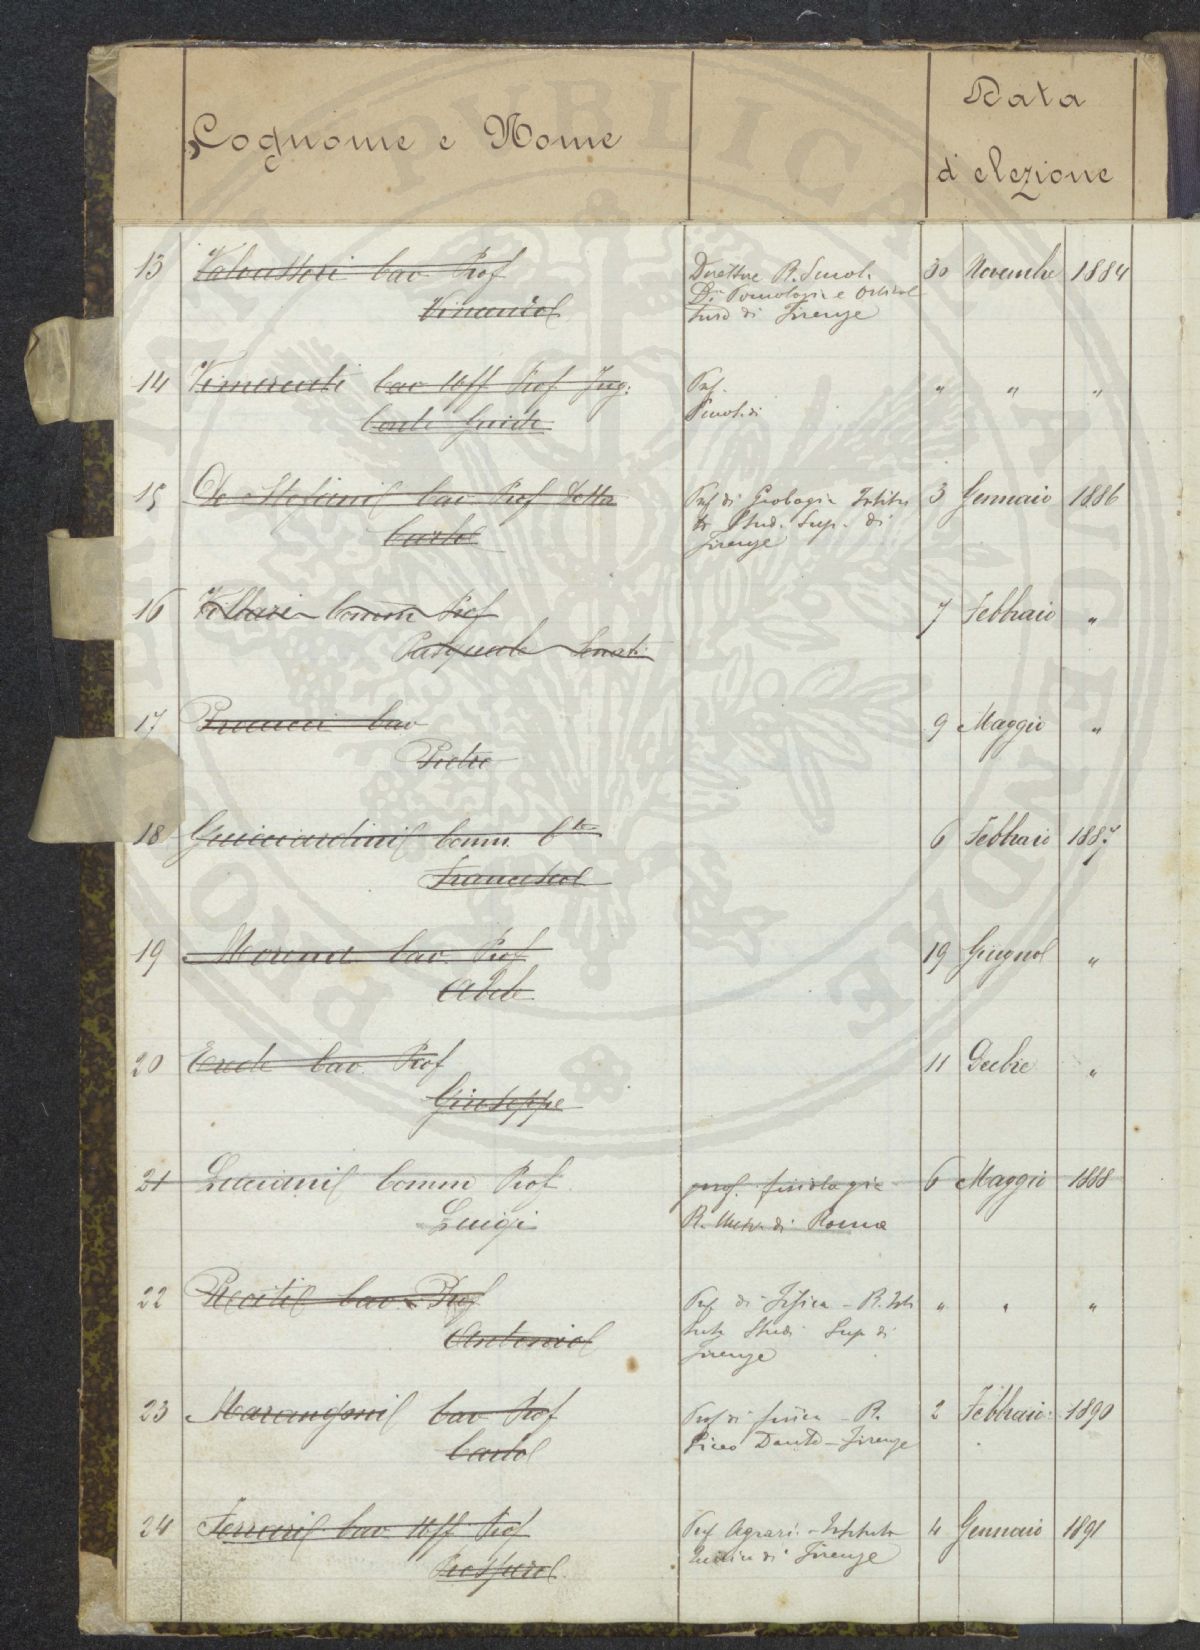 PROSPERITATI PVBLICAE AVGENDAE
Cognome e Nome
Data
d'elezione
13 Valvassori Cav. Prof Direttore R. Scuol. 30 Novembre 1884
Di Pomologia e Orticol
Vincenzo tura di Firenze
14 Vimercati Cav Uff Prof Ing: Prof. " " "
Conte Guido
15 De Stefani Cav Prof Dottr Prof di Geologia Istituto 3 Gennaio 1886
di Stud. Sup. di
Carlo Firenze
16 Villari Comm Prof 7 Febbraio "
Pasquale Senat:
17 Procacci Cav 9 Maggio "
Pietro
18 Guicciardini Comm. Cte 6 Febbraio 1887
Francesco
19 Cav. Prof 19 Giugno "
20 Erede Cav. Prof 11 Decbre "
Giuseppe
21 Luciani Comm Prof prof. fisiologia 6 Maggio 1888
Luigi R. Univ. di Roma
22 Roiti Cav. Prof Prof di Fisica - R. Isti " " "
tuto Studi Sup di
Antonio Firenze
23 Marangoni Cav Prof Prof di fisica - R. 2 Febbraio 1890
Carlo Liceo Dante - Firenze
24 Ferrari Cav Uff Prof Prof Agrari. - Istituto 4 Gennaio 1891
Prospero di Firenze